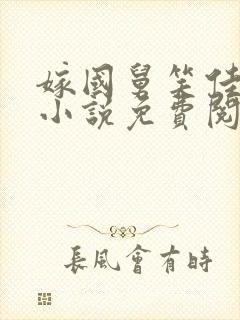 嫁國舅笑佳
小說免費閱
長風會有時